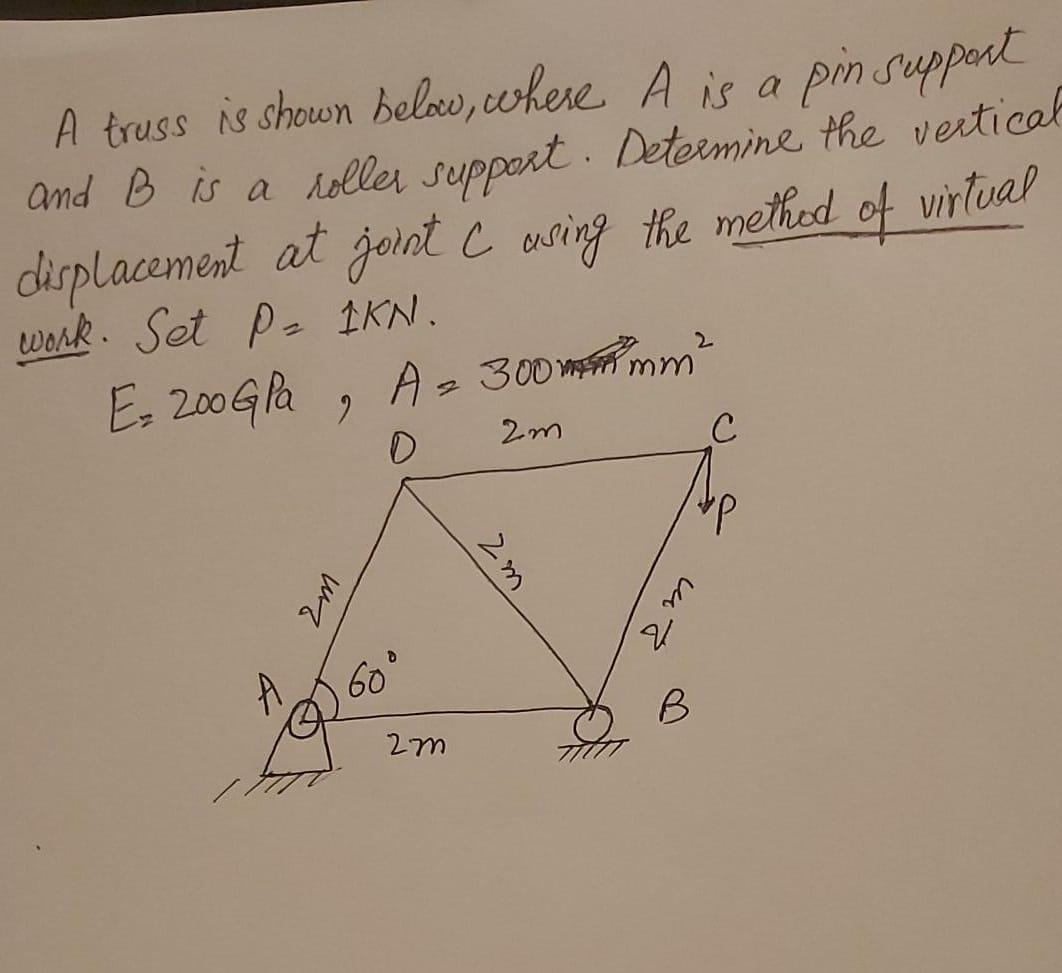 A truss is shown below, where A is a pin support
and B is a roller support. Determine the vertical
displacement at joint C using the method of virtual
work. Set P = 1KN.
E = 200GPa , A = 300 mm²
D 2m C
P
2m 2m 2m
A 60° B
2m